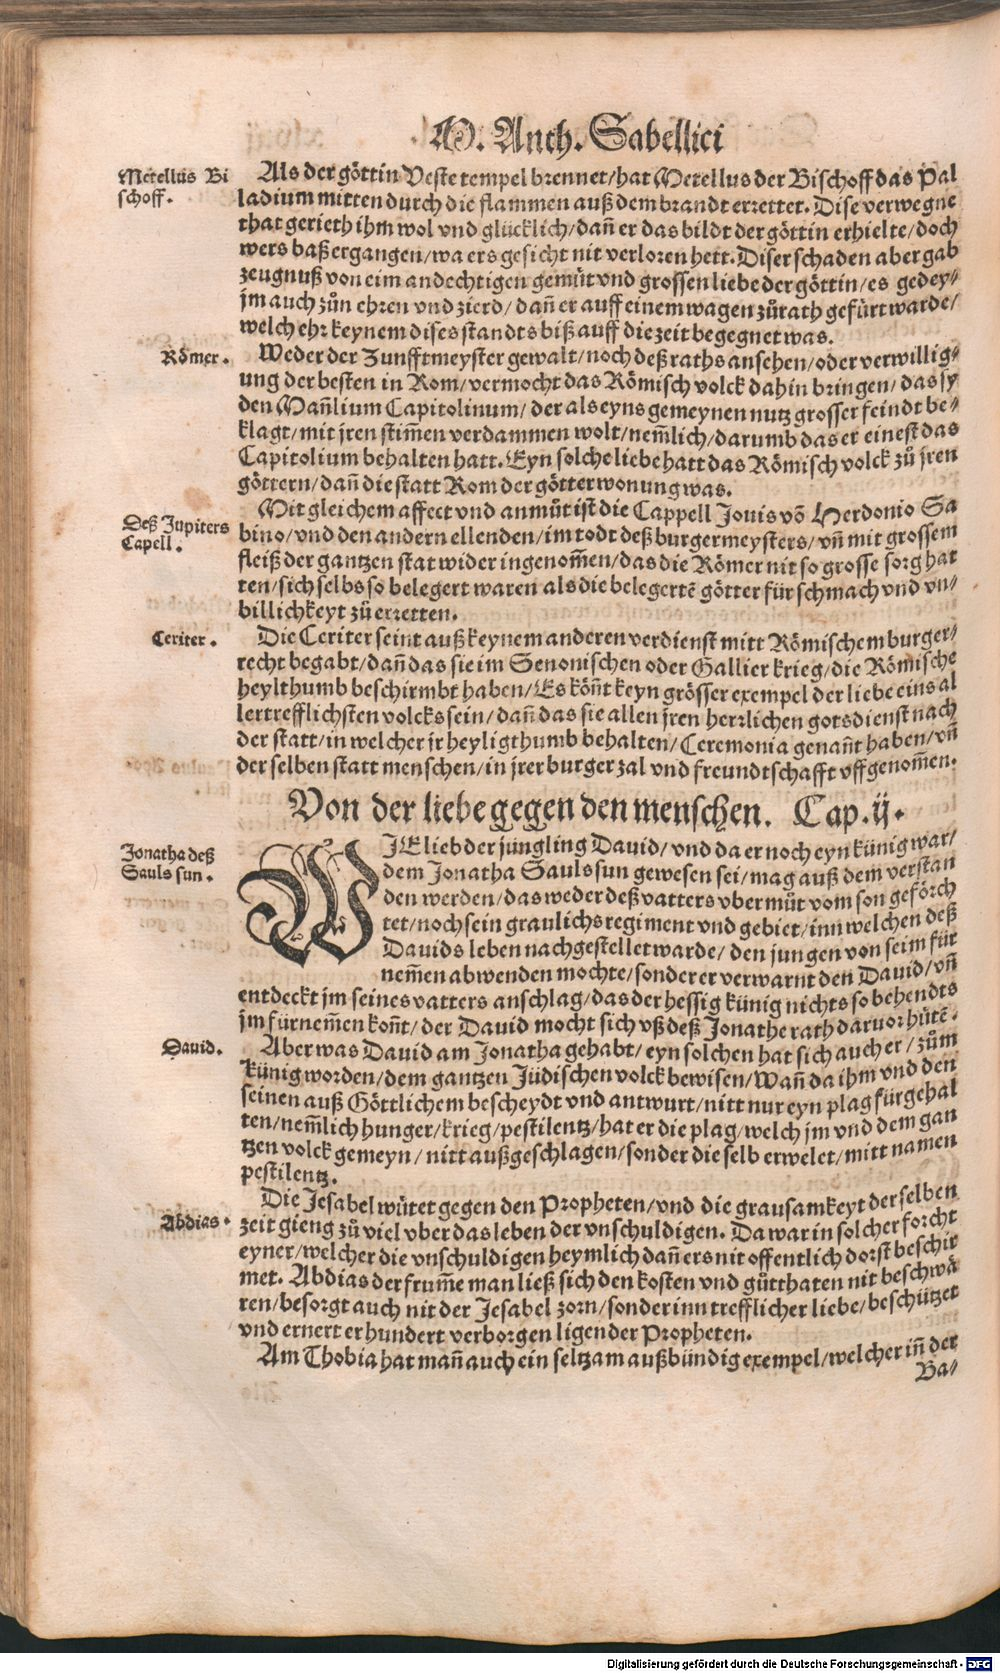 M. Anth. Sabellici
Metellus Bi
schoff.
Als der göttin Veste tempel brennet/hat Metellus der Bischoff das Pal
ladium mitten durch die flammen auß dem brandt errettet. Dise verwegne
that gerieth ihm wol vnd glücklich/dañ er das bildt der göttin erhielte/doch
wers baß ergangen/wa ers gesicht nit verloren hett. Diser schaden aber gab
zeugnuß von eim andechtigen gemüt vnd grossen liebe der göttin/es gedey⸗
jm auch zůn ehren vnd zierd/dañ er auff einem wagen zů rath gefürt warde/
welch ehr keynem dises standts biß auff die zeit begegnet was.
Römer.
Weder der Zunfftmeyster gewalt/noch deß raths ansehen/oder verwillig⸗
ung der besten in Rom/vermocht das Römisch volck dahin bringen/das sy
den Mañlium Capitolinum/der als eyns gemeynen nutz grosser feindt be⸗
klagt/mit jren stim̃en verdammen wolt/nem̃lich/darumb das er einest das
Capitolium behalten hatt. Eyn solche liebe hatt das Römisch volck zů jren
göttern/dañ die statt Rom der götter wonung was.
Deß Jupiters
Capell.
Mit gleichem affect vnd anmůt ist die Cappell Jouis võ Herdonio Sa
bino/vnd den andern ellenden/im todt deß burgermeysters/vñ mit grossem
fleiß der gantzen stat wider ingenom̃en/das die Römer nit so grosse sorg hat
ten/sich selbs so belegert waren als die belegertẽ götter für schmach vnd vn⸗
billichkeyt zů erretten.
Ceriter.
Die Ceriter seint auß keynem anderen verdienst mitt Römischem burger⸗
recht begabt/dañ das sie im Senonischen oder Gallier krieg/die Römische
heylthumb beschirmbt haben/Es köñt keyn grösser exempel der liebe eins al
lertrefflichsten volcks sein/dañ das sie allen jren herrlichen gotsdienst nach
der statt/in welcher jr heyligthumb behalten/Ceremonia genañt haben/vñ
der selben statt menschen/in jrer burger zal vnd freundtschafft vffgenom̃en.
Von der liebe gegen den menschen. Cap. ij.
Jonatha deß
Sauls sun.
WJE lieb der jüngling Dauid/vnd da er noch eyn künig war/
dem Jonatha Sauls sun gewesen sei/mag auß dem verstan
den werden/das weder deß vatters vbermůt vom son geförch
tet/noch sein graulichs regiment vnd gebiet/inn welchen deß
Dauids leben nachgestellet warde/den jungen von seim für
nem̃en abwenden mochte/sonder er verwarnt den Dauid/vñ
entdeckt jm seines vatters anschlag/das der hessig künig nichts so behendts
jm fürnem̃en koñt/der Dauid mocht sich vß deß Jonathe rath daruor hůtẽ.
Dauid.
Aber was Dauid am Jonatha gehabt/eyn solchen hat sich auch er/zům
künig worden/dem gantzen Jüdischen volck bewisen/Wañ da ihm vnd den
seinen auß Göttlichem bescheydt vnd antwurt/nitt nur eyn plag fürgehal
ten/nem̃lich hunger/krieg/pestilentz/hat er die plag/welch jm vnd dem gan
tzen volck gemeyn/nitt außgeschlagen/sonder die selb erwelet/mitt namen
pestilentz.
Abdias.
Die Jesabel wütet gegen den Propheten/vnd die grausamkeyt der selben
zeit gieng zů viel vber das leben der vnschuldigen. Da war in solcher forcht
eyner/welcher die vnschuldigen heymlich dañ ers nit offentlich dorst beschir
met. Abdias der frum̃e man ließ sich den kosten vnd gůtthaten nit beschwä
ren/besorgt auch nit der Jesabel zorn/sonder inn trefflicher liebe/beschützet
vnd ernert er hundert verborgen ligender Propheten.
Am Thobia hat mañ auch ein seltzam außbündig exempel/welcher iñ der
Ba⸗
Digitalisierung gefördert durch die Deutsche Forschungsgemeinschaft - DFG